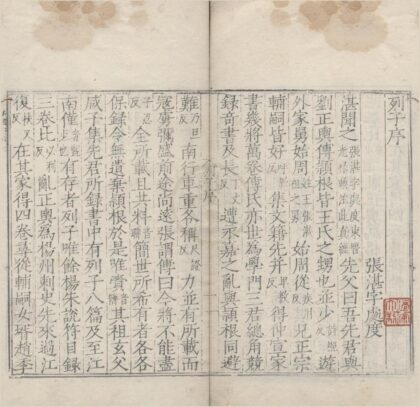 列子序
張湛字處度
湛聞之張湛字處度東晉光祿勳注此眞經先父曰吾先君與
劉正輿傅穎根皆王氏之甥也並少詩照反遊
外家舅始周始周從疾用反兄正宗
輔嗣皆好呼到反集文籍先并卑政反得仲宣家
書幾將萬卷傅氏亦世爲學門三君總角競
錄奇書及長丁丈反遭永嘉之亂與穎根同避
難乃旦反南行車重各稱尺證反力並有所載而
寇虜彌盛前途尚遠張謂傅曰今將不能盡
子忍反全所載且共料音聊簡世所希有者各各
保錄令無遺棄穎根於是唯賫其祖玄父
咸子集先君所錄書中有列子八篇及至江
南僅有存者列子唯餘楊朱說符目錄
三卷比必利反亂正輿爲楊州刺史先來過江
復扶又反在其家得四卷尋從輔嗣女壻趙季